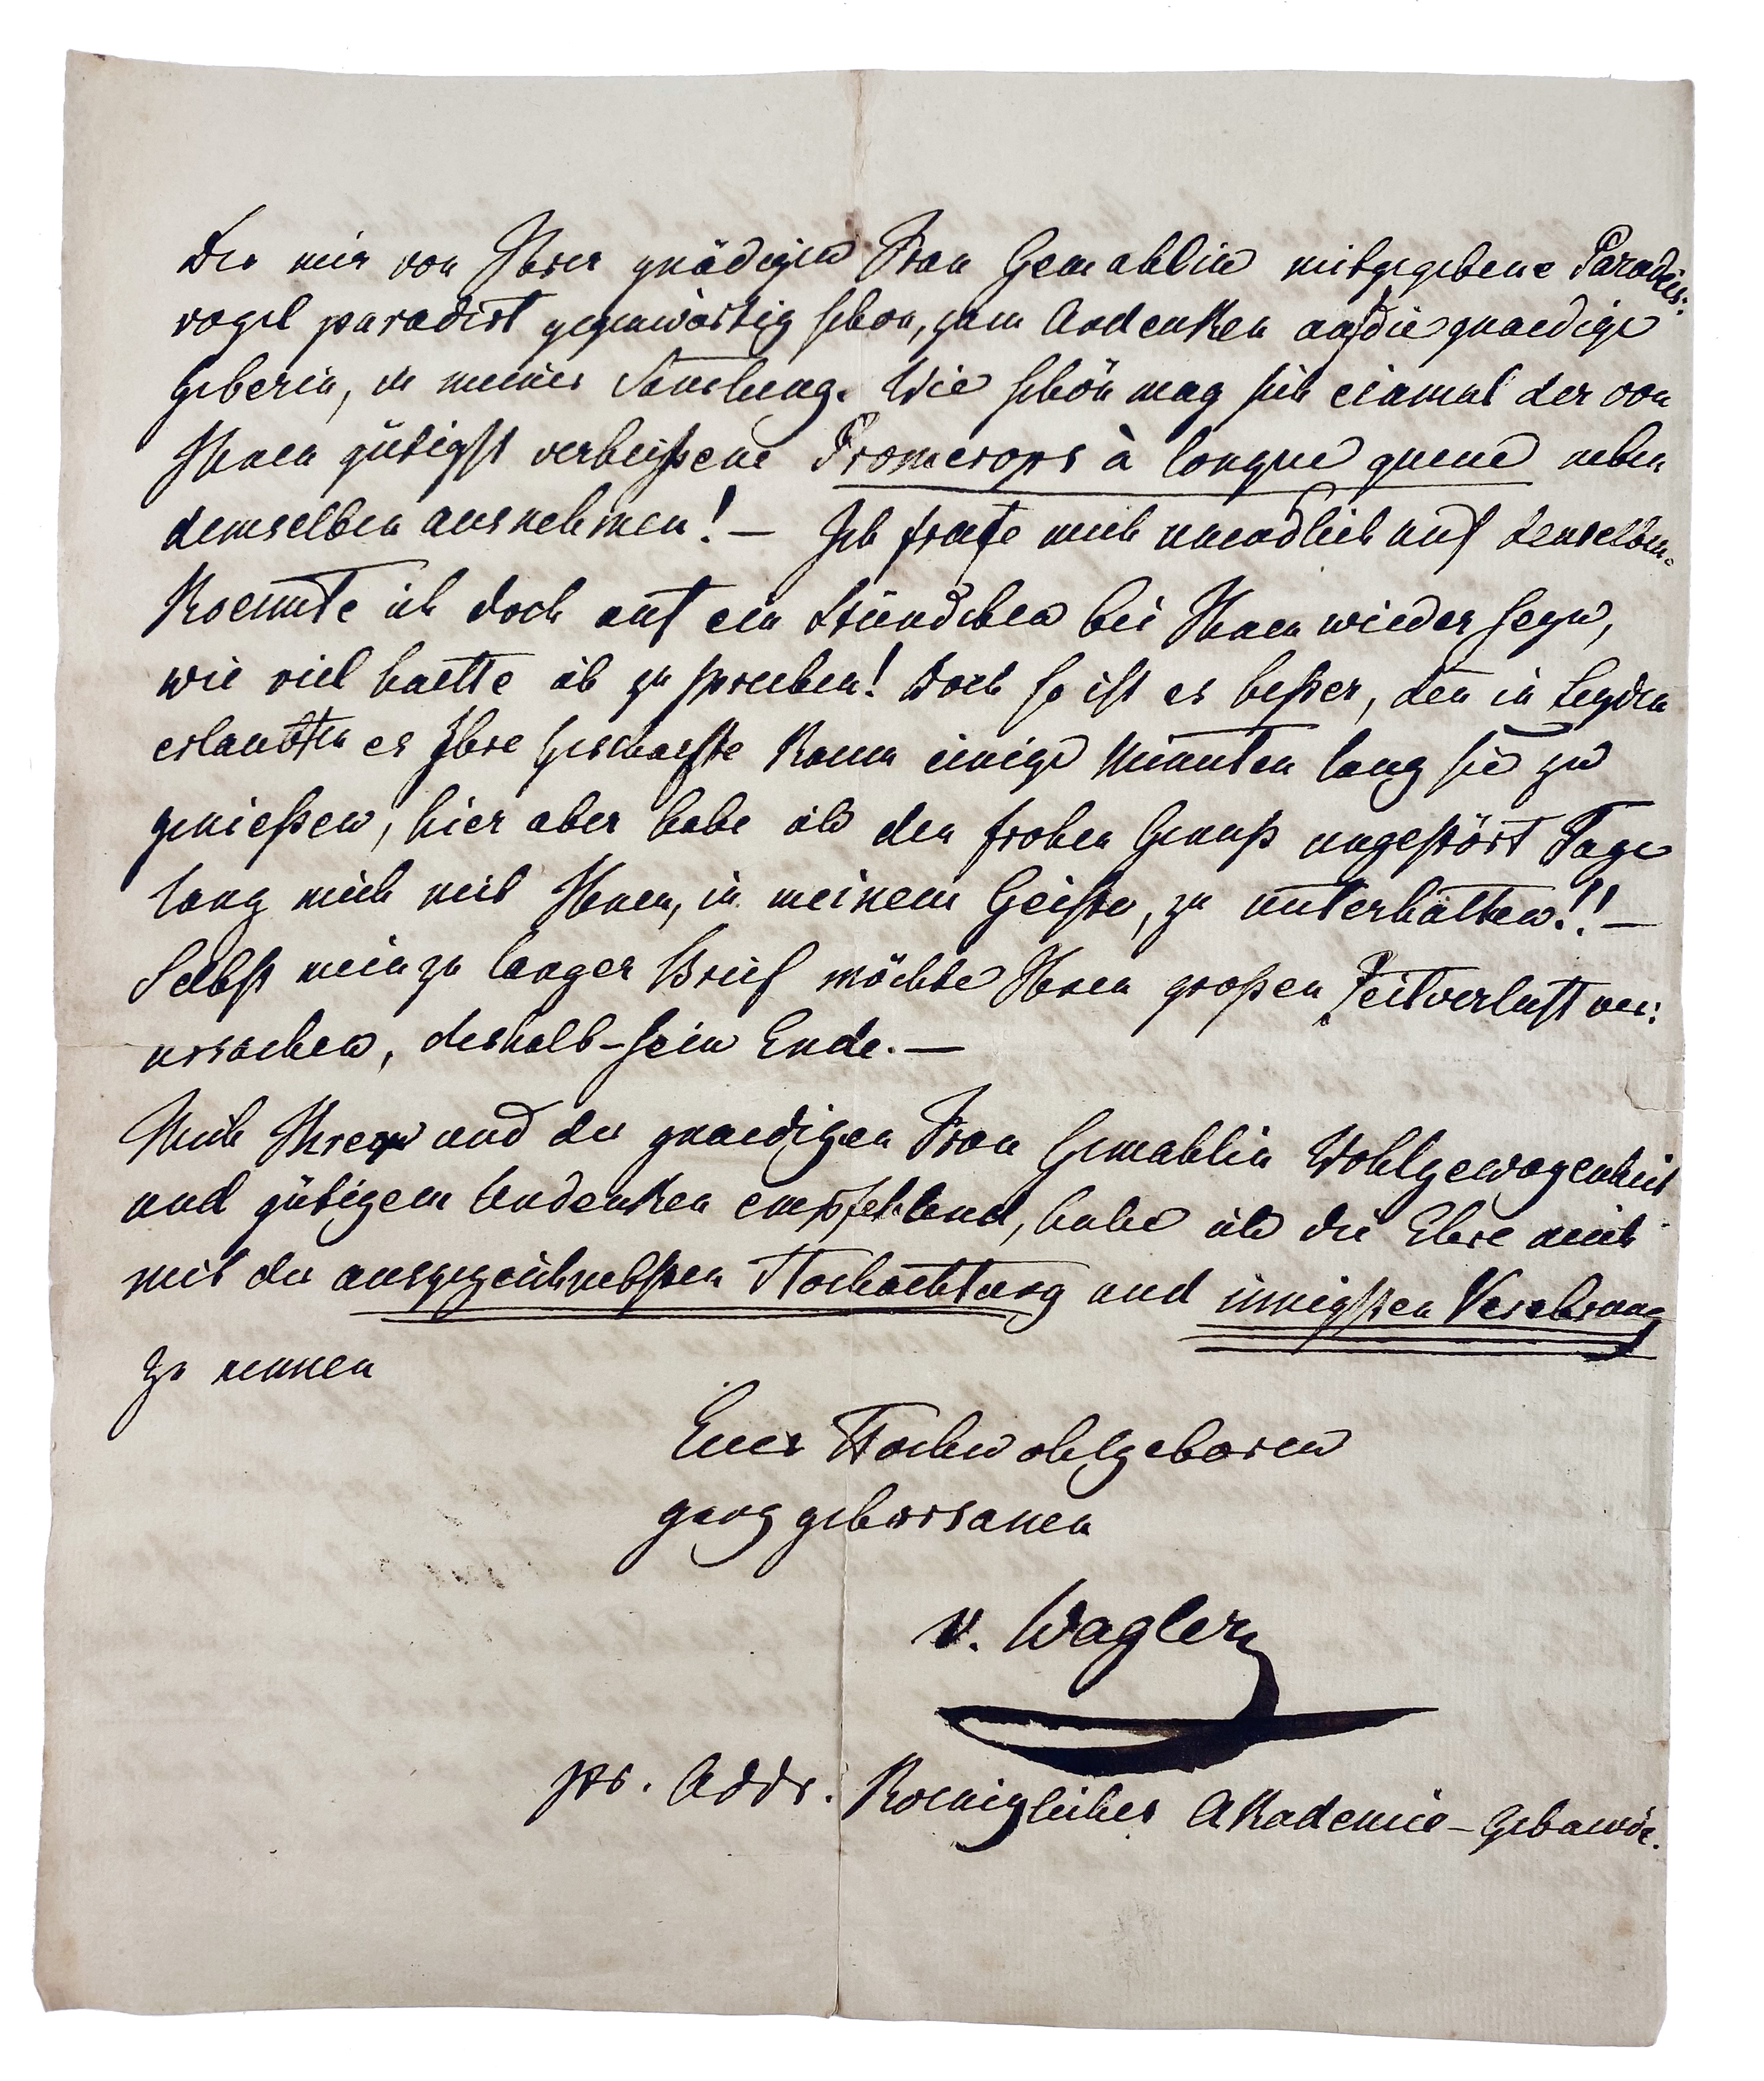 Der mir von Ihrer gnädigen Frau Gemahlin mitgegebene Paradies:
vogel paradirt gegenwärtig schon, zum Andenken an die gnaedige
Geberin, in meiner Samlung. Wie schön mag sich einmal der von
Ihnen gütigst verheißene Promerops à longue queue neben
demselben ausnehmen! — Ich freue mich unendlich auf denselben.
Koennte ich doch auf ein Stündchen bei Ihnen wieder seyn,
wie viel haette ich zu sprechen! Doch so ist es beßer, den̄ in Leyden
erlaubten es Ihre Geschaefte kaum einige Minuten lang sie zu
genießen, hier aber habe ich den frohen Genuß ungestört Tage
lang mich mit Ihnen, in meinem Geiste, zu unterhalten!! —
Selbst mein zu langer Brief möchte Ihnen großen Zeitverlust ver:
ursachen, deshalb – sein Ende. —
Mich Ihrer und der gnaedigen Frau Gemahlin Wohlgewogenheit
und gütigem Andenken empfehlend, habe ich die Ehre mich
mit der ausgezeichnetsten Hochachtung und innigsten Verehrung
zu nennen
Euer Hochwohlgeboren
ganz gehorsamen
v. Wagler
pr. Addr. Koeniglicher Akademie – Gebaeude.